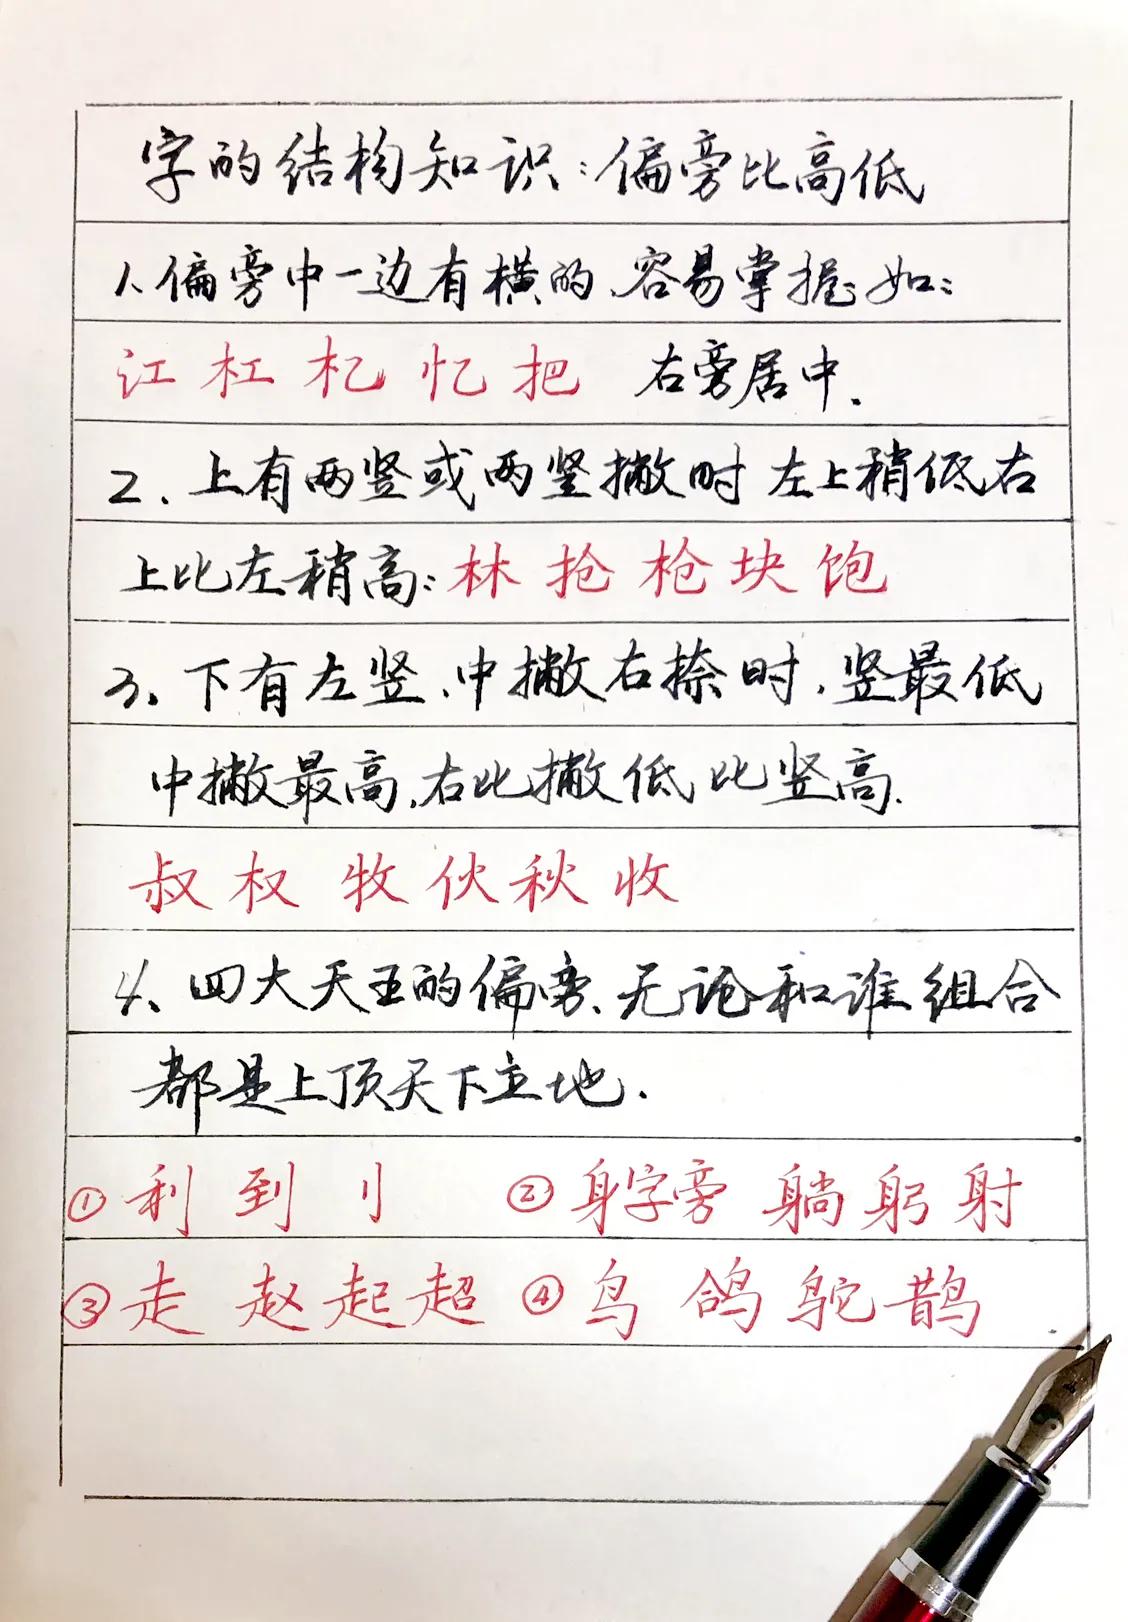 字的结构知识：偏旁比高低
1、偏旁中一边有横的、容易掌握如：
江 杠 杚 忆 把 右旁居中.
2、上有两竖或两竖撇时 左上稍低右
上比左稍高：林 抢 枪 块 饱
3、下有左竖、中撇右捺时，竖最低
中撇最高，右比撇低比竖高.
叔 权 牧 伙 秋 收
4、四大天王的偏旁、无论和谁组合
都是上顶天下立地.
①利 到 刂 ②身字旁 躺 躬 射
③走 赵 起 超 ④鸟 鸽 鸵 鹊